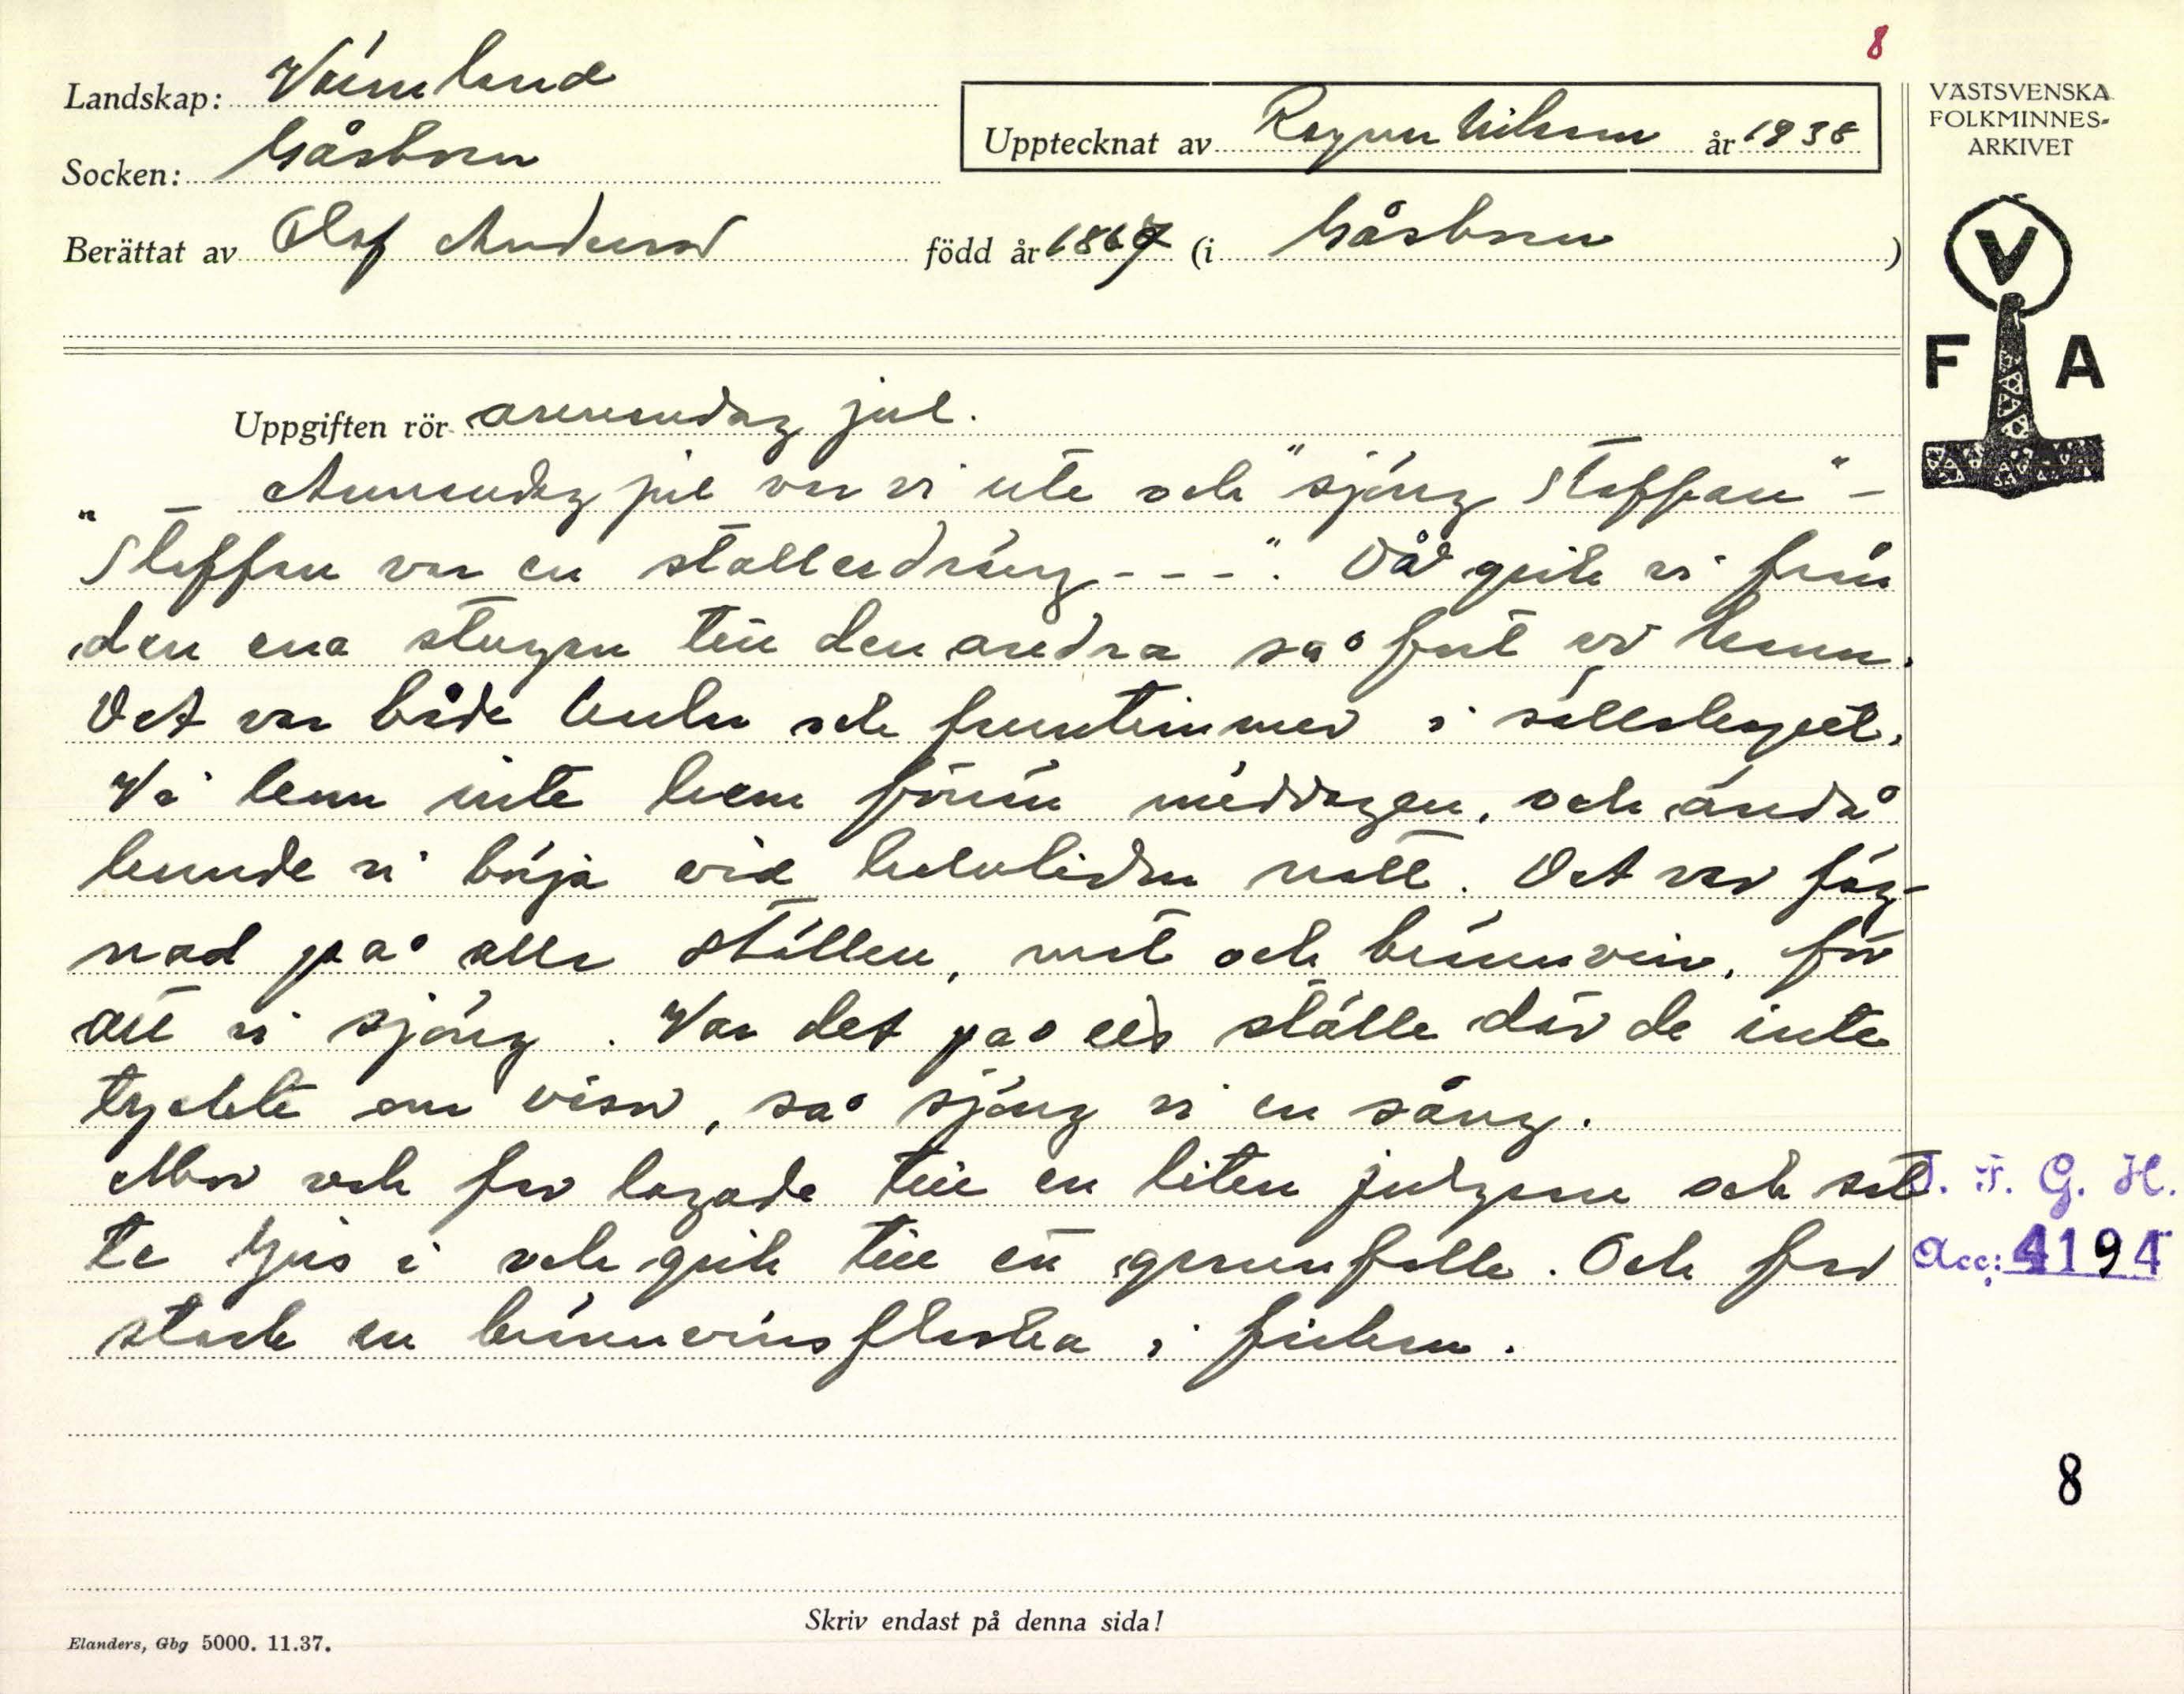 8
Landskap: Värmland
Socken: Gåsborn
Upptecknat av Ragnar Nilsson år 1938
Berättat av Olof Anderson född år 1867 (i Gåsborn)
VÄSTSVENSKA
FOLKMINNES-
ARKIVET
V
F A
Uppgiften rör annandag jul.
Annandag jul var vi ute och "sjöng Staffan" -
"Staffan var en stalledräng - - -". Då gick vi från
den ena stugan till den andra så fort vi kunn.
Det var både karlar och fruntimmer i sällskapet.
Vi kom inte hem förrän middagen, och ändå
kunde vi börja vid halvliden natt. Det var fäg-
nad på alla ställen, mat och brännvin, för
att vi sjöng. Var det på ett ställe där de inte
tyckte om visor, så sjöng vi en sång.
Mor och far lagade till en liten julgran och sat
te ljus i och gick till en grannfolk. Och far
stack en brännvinsflaska i fickan.
I. F. G. H.
Acc: 4194
8
Skriv endast på denna sida!
Elanders, Gbg 5000. 11.37.